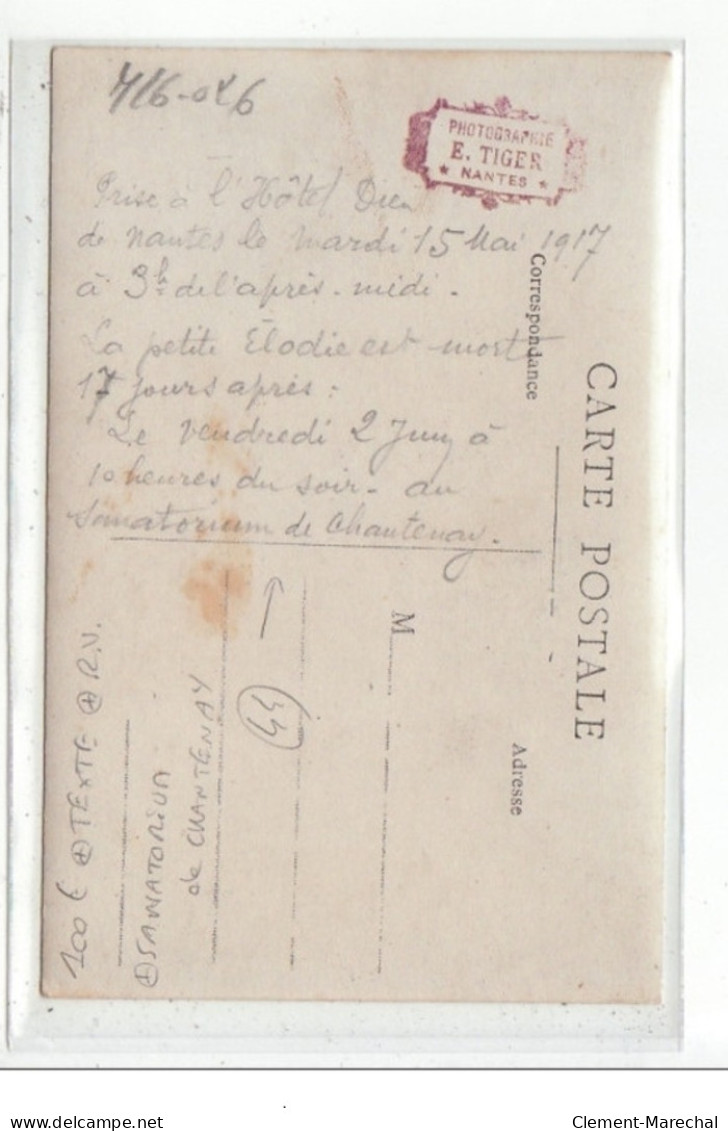 716-046
PHOTOGRAPHIE
E. TIGER
★ NANTES ★
Prise à l'Hôtel Dieu
de Nantes le mardi 15 Mai 1917
à 3h de l'après-midi.
La petite Élodie est morte
17 jours après :
Le Vendredi 2 Juin à
10 heures du soir - au
Sanatorium de Chantenay.
Correspondance
CARTE POSTALE
M
Adresse
44
+ SANATORIUM
de CHANTENAY
100 € + TEXTE + R.V.
Clement-Marechal